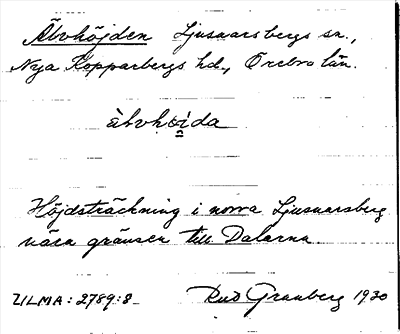 Älvhöjden Ljusnarsbergs sn.,
Nya Kopparbergs hd., Örebro län.
älvhöida
Höjdsträckning i norra Ljusnarsberg
nära gränsen till Dalarna.
ULMA: 2789:8 Rud Granberg 1930